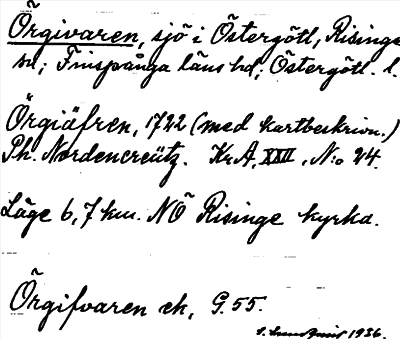 Örgivaren, sjö i Östergötl, Risinge
sn; Finspånga läns hd; Östergötl. l.
Örgiäfren, 1722 (med kartbeskrivn.)
Ph. Nordencreütz. Kr.A. XXII, N:o 24.
Läge 6,7 km. NÖ Risinge kyrka.
Örgifvaren ek, G.55.
1936.